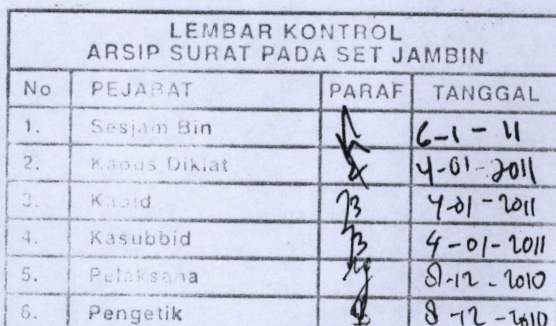 LEMBAR KONTROL
ARSIP SURAT PADA SET JAMBIN
No PEJABAT PARAF TANGGAL
1. Sesjam Bin 6-1-11
2. Kapus Diklat 4-01-2011
3. Kabid 4-01-2011
4. Kasubbid 4-01-2011
5. Pelaksana 8-12-2010
6. Pengetik 8-12-2010